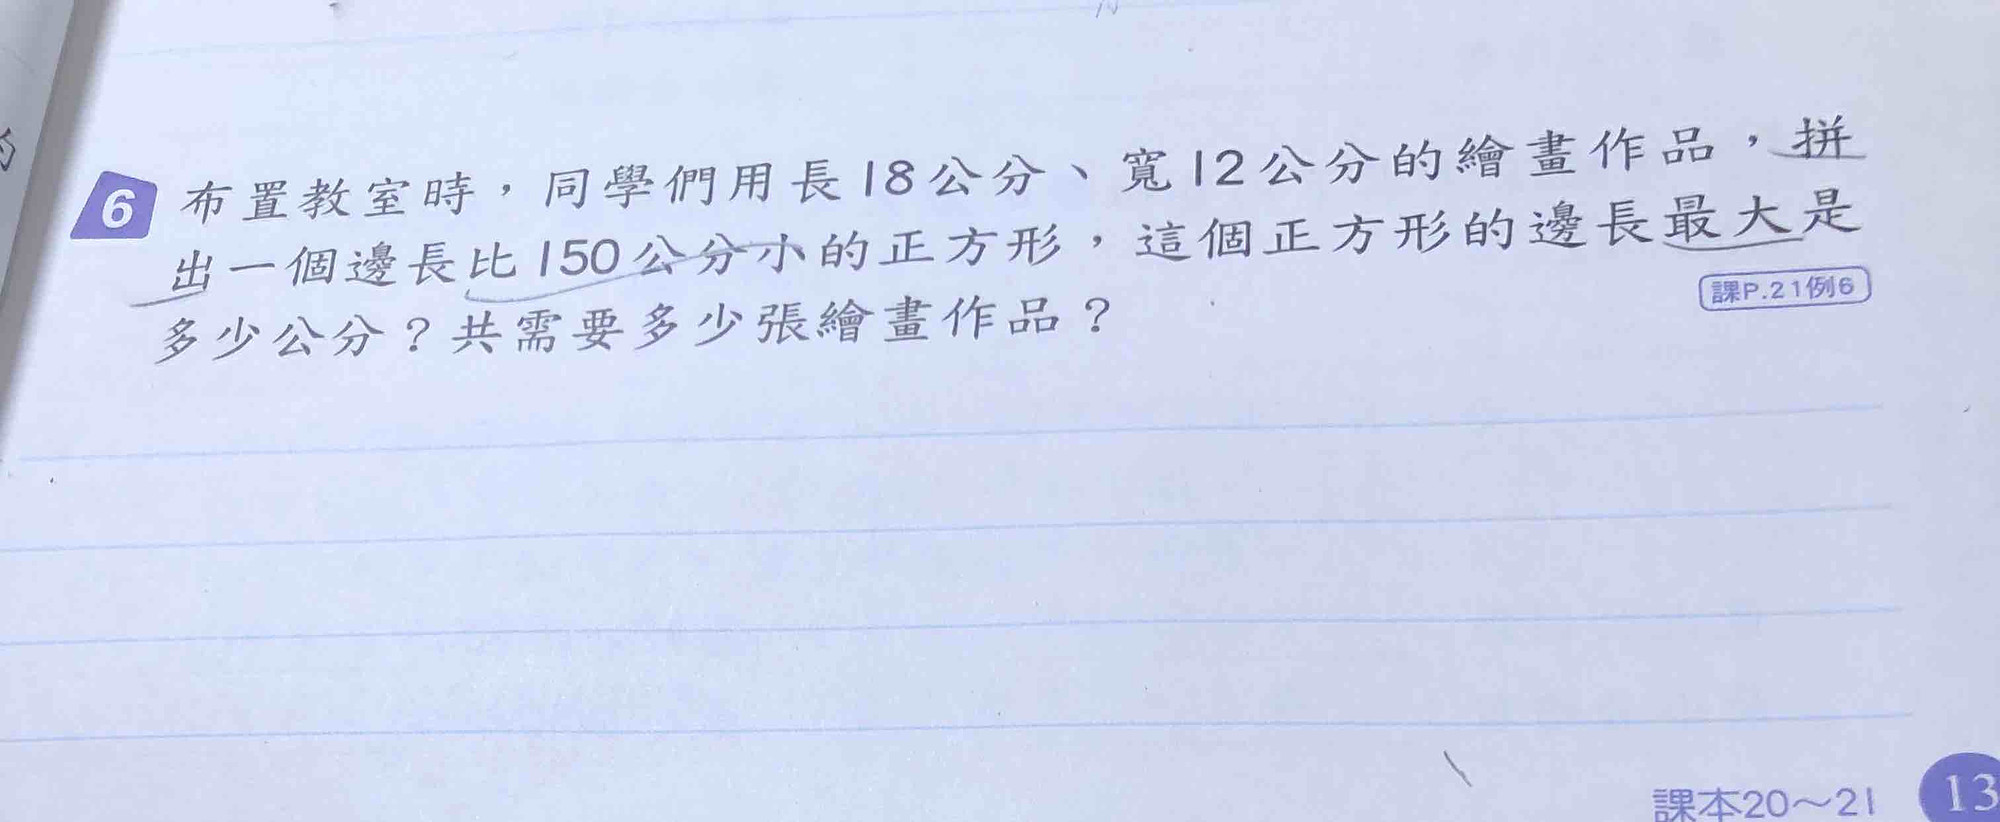 6 布置教室時，同學們用長18公分、寬12公分的繪畫作品，拼
出一個邊長比150公分小的正方形，這個正方形的邊長最大是
多少公分？共需要多少張繪畫作品？
課P.21例6
課本20～21
13